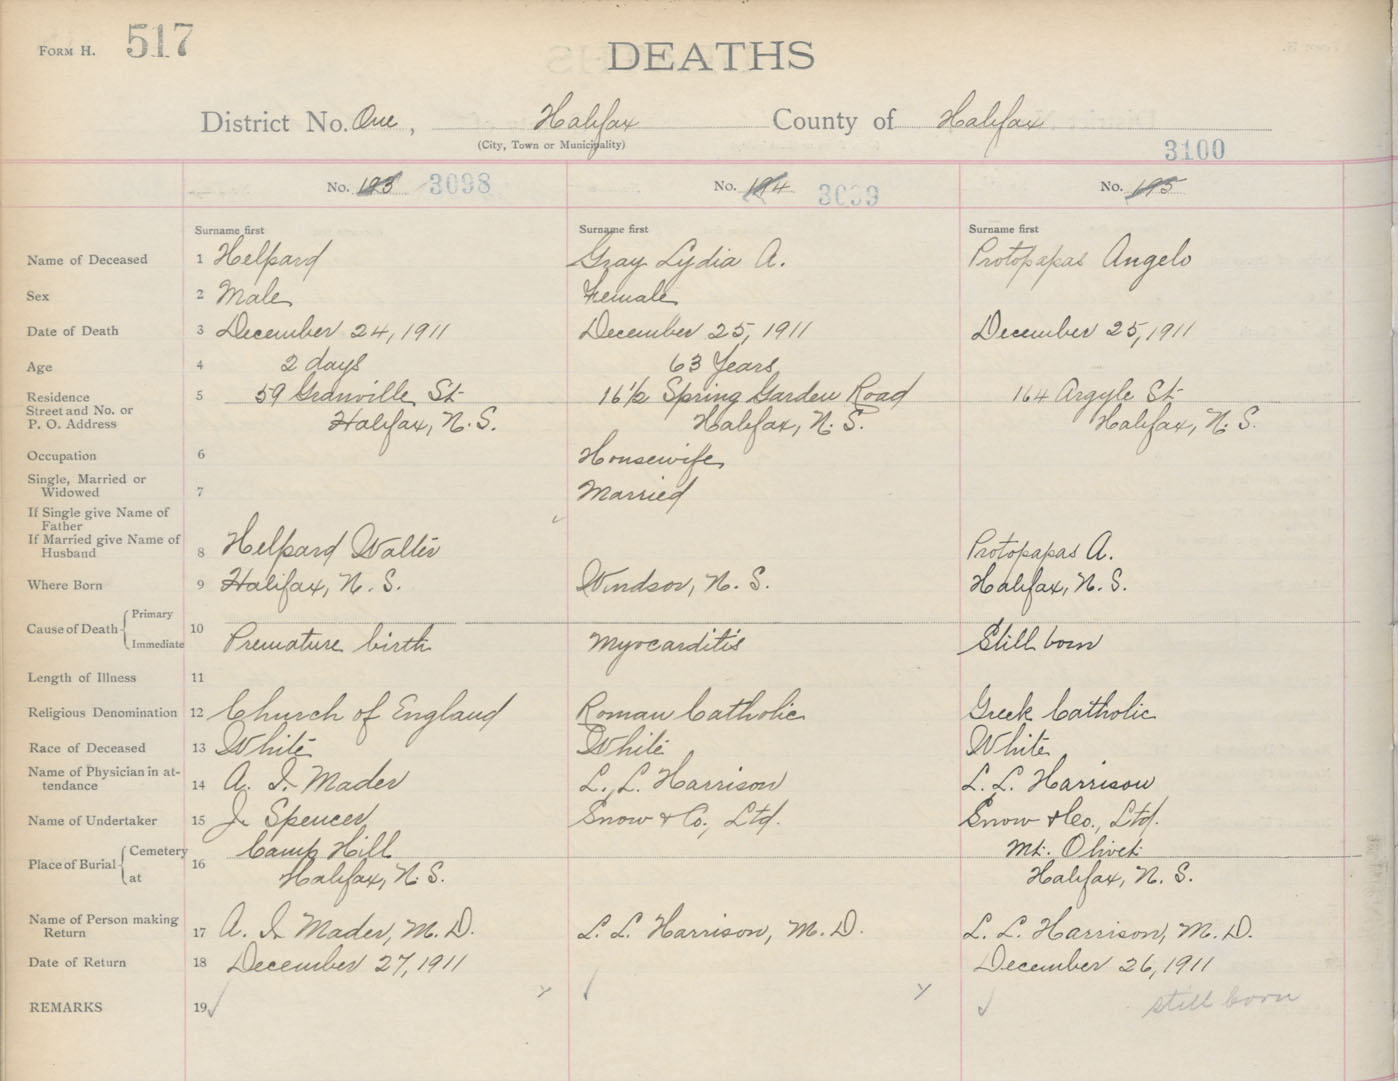 FORM H. 517
DEATHS
District No. One, Halifax County of Halifax
(City, Town or Municipality)
3100
No. 193 3098 No. 194 3099 No. 195
Surname first Surname first Surname first
Name of Deceased 1 Helpard Gray Lydia A. Protopapas Angelo
Sex 2 Male Female
Date of Death 3 December 24, 1911 December 25, 1911 December 25, 1911
Age 4 2 days 63 Years
Residence 5 59 Granville St. 16 1/2 Spring Garden Road 164 Argyle St.
Street and No. or
P. O. Address Halifax, N. S. Halifax, N. S. Halifax, N. S.
Occupation 6 Housewife
Single, Married or
Widowed 7 Married
If Single give Name of
Father
If Married give Name of
Husband 8 Helpard Walter Protopapas A.
Where Born 9 Halifax, N. S. Windsor, N. S. Halifax, N. S.
Primary
Cause of Death 10
Immediate Premature birth Myocarditis Still born
Length of Illness 11
Religious Denomination 12 Church of England Roman Catholic Greek Catholic
Race of Deceased 13 White White White
Name of Physician in at-
tendance 14 A. I. Mader L. L. Harrison L. L. Harrison
Name of Undertaker 15 J. Spencer Snow & Co., Ltd. Snow & Co., Ltd.
Cemetery Camp Hill Mt. Olivet
Place of Burial 16
at Halifax, N. S. Halifax, N. S.
Name of Person making
Return 17 A. I. Mader, M. D. L. L. Harrison, M. D. L. L. Harrison, M. D.
Date of Return 18 December 27, 1911 December 26, 1911
REMARKS 19 still born